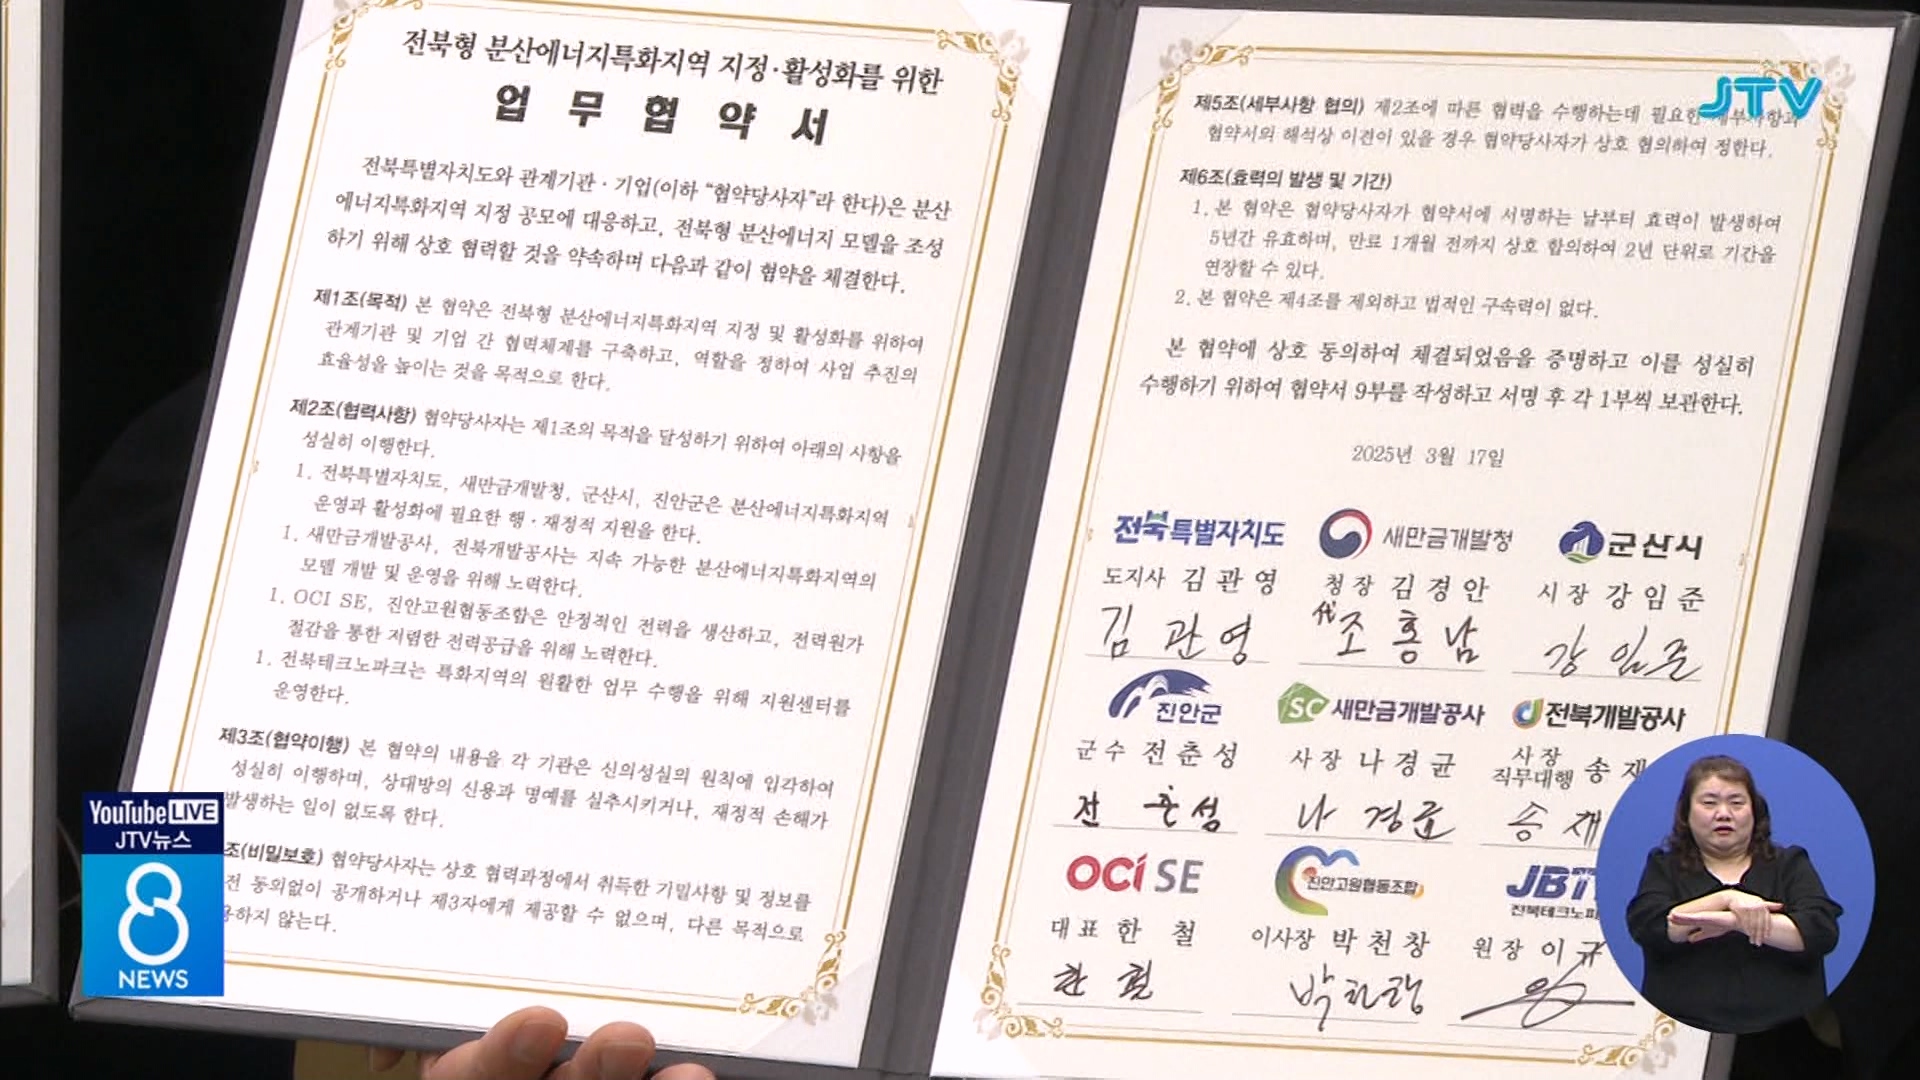 전북형 분산에너지특화지역 지정·활성화를 위한
업 무 협 약 서
전북특별자치도와 관계기관·기업(이하 “협약당사자”라 한다)은 분산
에너지특화지역 지정 공모에 대응하고, 전북형 분산에너지 모델을 조성
하기 위해 상호 협력할 것을 약속하며 다음과 같이 협약을 체결한다.
제1조(목적) 본 협약은 전북형 분산에너지특화지역 지정 및 활성화를 위하여
관계기관 및 기업 간 협력체계를 구축하고, 역할을 정하여 사업 추진의
효율성을 높이는 것을 목적으로 한다.
제2조(협력사항) 협약당사자는 제1조의 목적을 달성하기 위하여 아래의 사항을
성실히 이행한다.
1. 전북특별자치도, 새만금개발청, 군산시, 진안군은 분산에너지특화지역
운영과 활성화에 필요한 행·재정적 지원을 한다.
1. 새만금개발공사, 전북개발공사는 지속 가능한 분산에너지특화지역의
모델 개발 및 운영을 위해 노력한다.
1. OCI SE, 진안고원협동조합은 안정적인 전력을 생산하고, 전력원가
절감을 통한 저렴한 전력공급을 위해 노력한다.
1. 전북테크노파크는 특화지역의 원활한 업무 수행을 위해 지원센터를
운영한다.
제3조(협약이행) 본 협약의 내용을 각 기관은 신의성실의 원칙에 입각하여
성실히 이행하며, 상대방의 신용과 명예를 실추시키거나, 재정적 손해가
발생하는 일이 없도록 한다.
조(비밀보호) 협약당사자는 상호 협력과정에서 취득한 기밀사항 및 정보를
전 동의없이 공개하거나 제3자에게 제공할 수 없으며, 다른 목적으로
하지 않는다.
제5조(세부사항 협의) 제2조에 따른 협력을 수행하는데 필요한 세부사항과
협약서의 해석상 이견이 있을 경우 협약당사자가 상호 협의하여 정한다.
제6조(효력의 발생 및 기간)
1. 본 협약은 협약당사자가 협약서에 서명하는 날부터 효력이 발생하여
5년간 유효하며, 만료 1개월 전까지 상호 합의하여 2년 단위로 기간을
연장할 수 있다.
2. 본 협약은 제4조를 제외하고 법적인 구속력이 없다.
본 협약에 상호 동의하여 체결되었음을 증명하고 이를 성실히
수행하기 위하여 협약서 9부를 작성하고 서명 후 각 1부씩 보관한다.
2025년 3월 17일
전북특별자치도 새만금개발청 군산시
도지사 김 관 영 청장 김 경 안 시장 강 임 준
김 관 영 代 조 홍 남 강 임 준
진안군 SC 새만금개발공사 전북개발공사
군수 전 춘 성 사장 나 경 균 사장 직무대행 송 재
전 춘 성 나 경 균 송 재
OCI SE 진안고원협동조합 JBT
전북테크노파
대표 한 철 이사장 박 천 창 원장 이 규
한 철 박 천 창
JTV
YouTube LIVE
JTV뉴스
8
NEWS